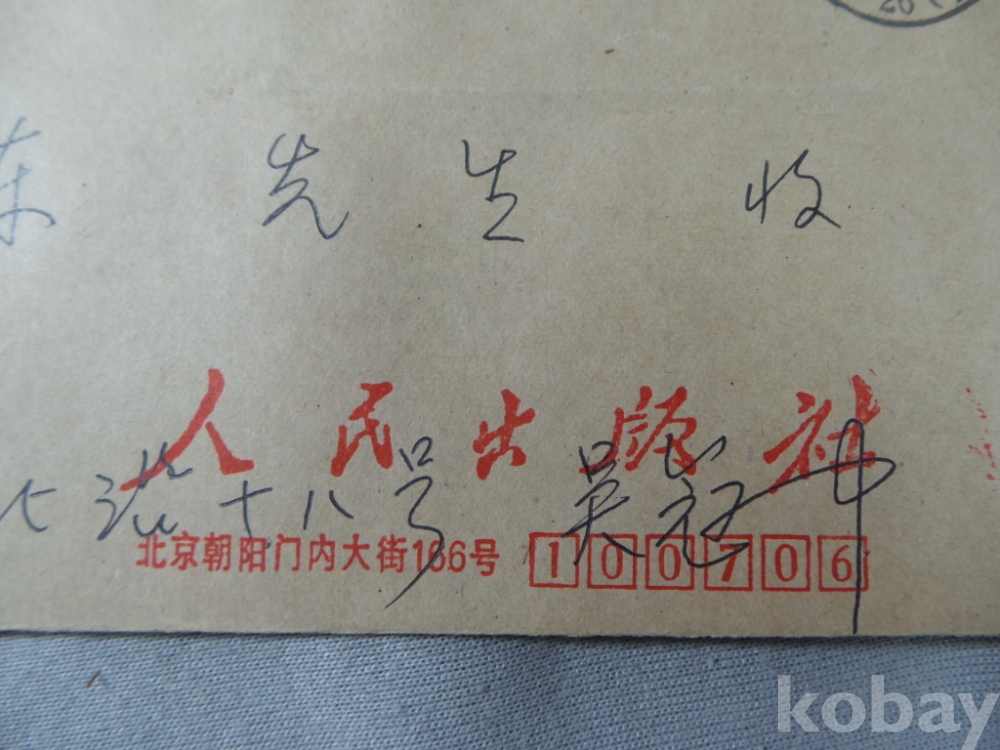 先生 收
人民出版社
十八号 吴
北京朝阳门内大街166号 100706
kobay